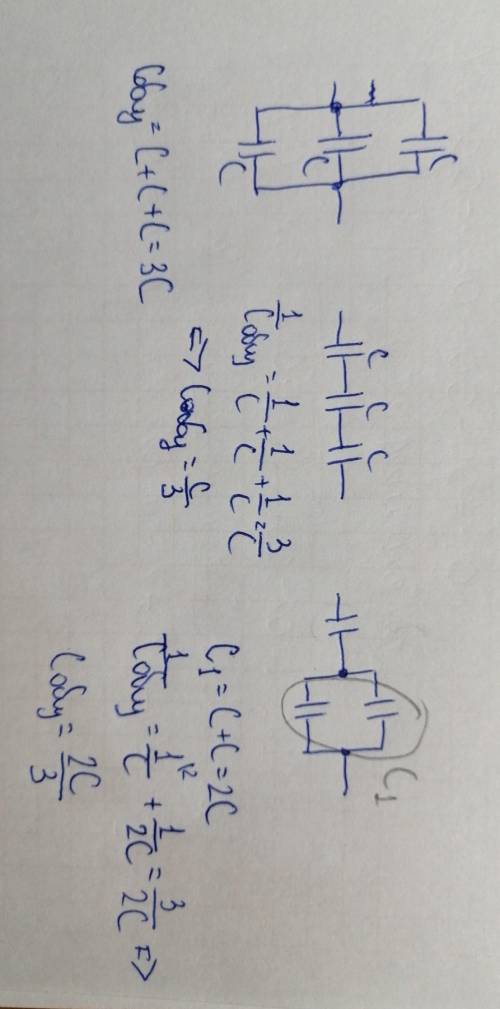 C
C
C
Cобщ = C+C+C = 3C
C C C
1/Cобщ = 1/C + 1/C + 1/C = 3/C
=> Cобщ = C/3
C₁
C₁ = C+C = 2C
1/Cобщ = 1/C + 1/2C = 3/2C =>
Cобщ = 2C/3